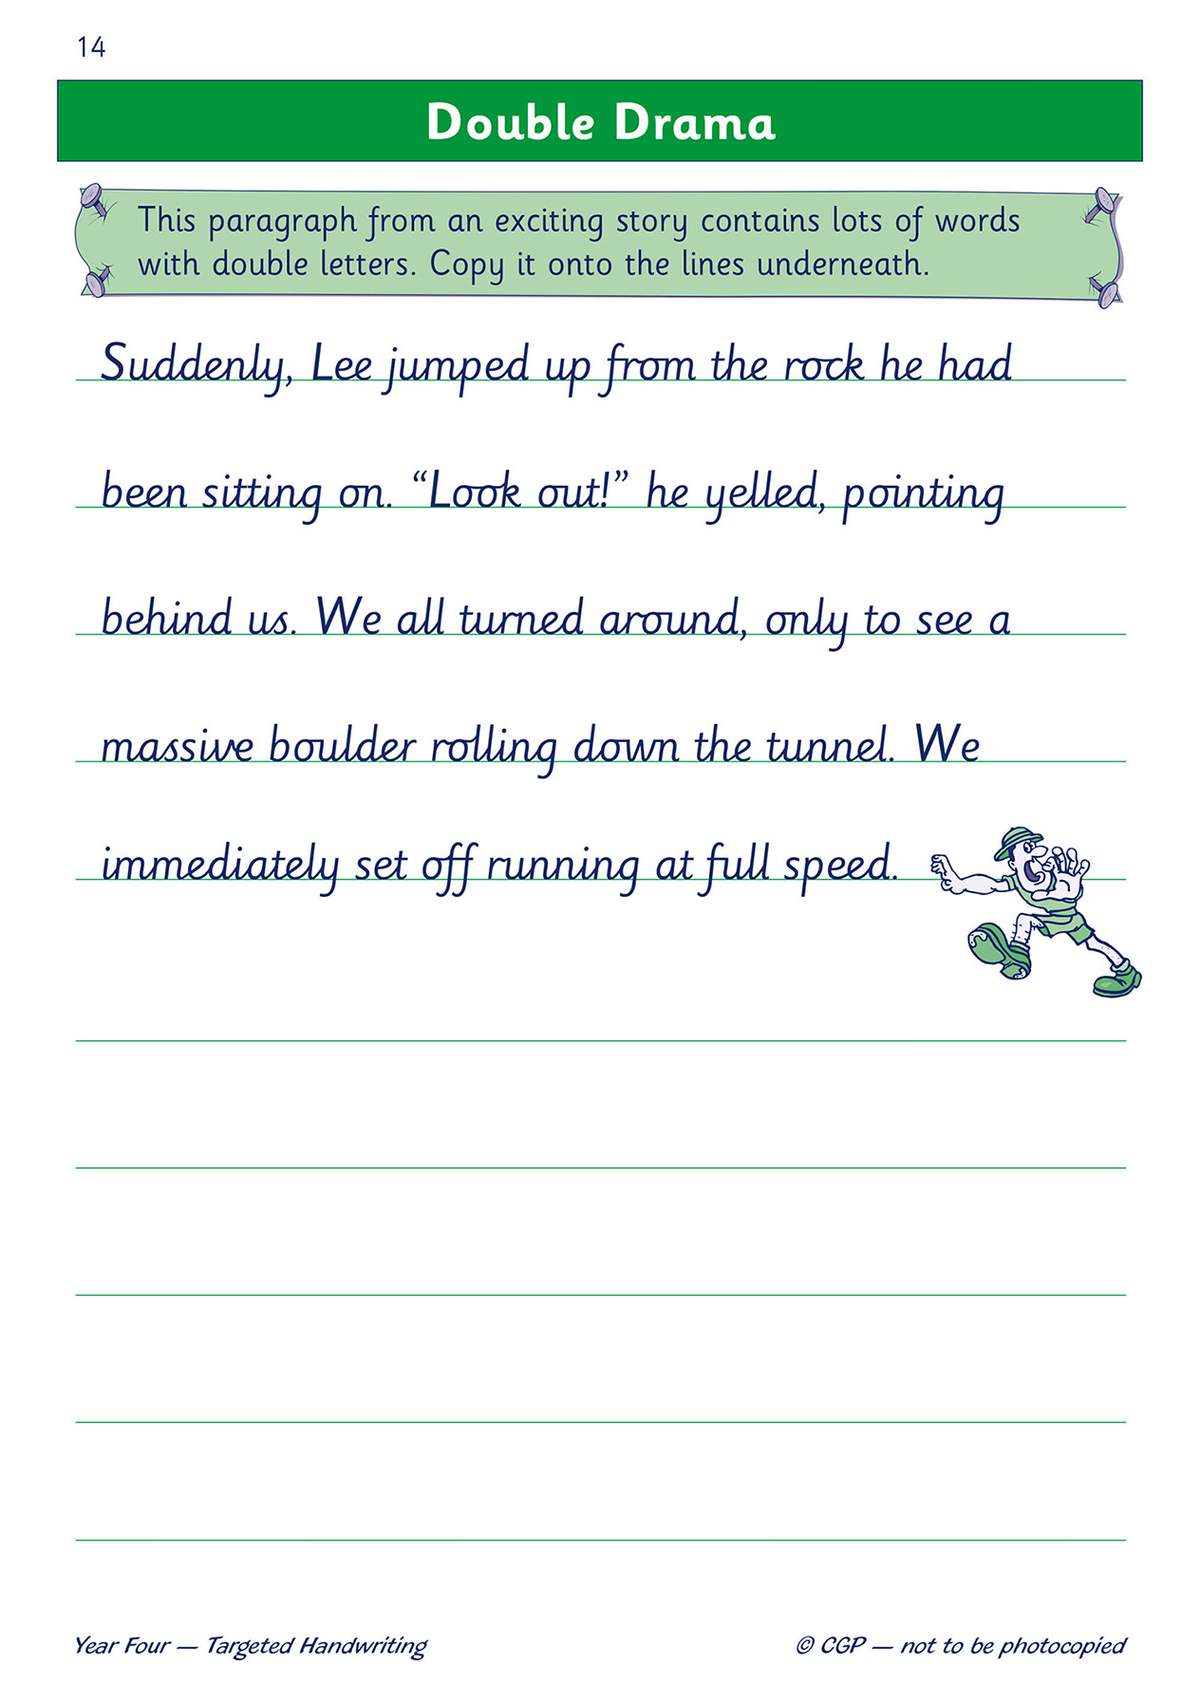 14
Double Drama
This paragraph from an exciting story contains lots of words
with double letters. Copy it onto the lines underneath.
Suddenly, Lee jumped up from the rock he had
been sitting on. “Look out!” he yelled, pointing
behind us. We all turned around, only to see a
massive boulder rolling down the tunnel. We
immediately set off running at full speed.
Year Four — Targeted Handwriting
© CGP — not to be photocopied